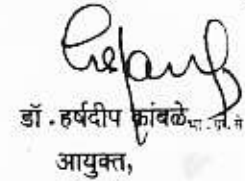 डॉ. हर्षदीप कांबळे भा.प्र.से
आयुक्त,